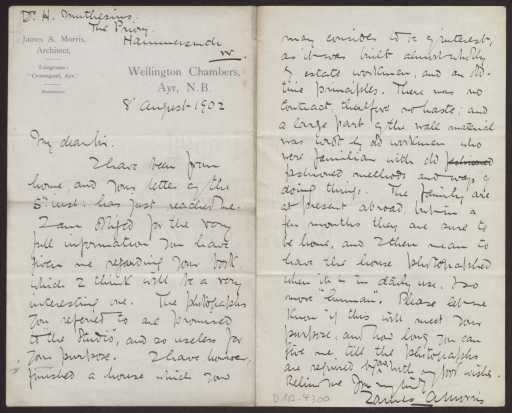 Dr. H. Muthesius,
The Priory,
Hammersmith
W.
James A. Morris,
Architect.
Telegrams:
"Crownguel, Ayr."
Wellington Chambers,
Ayr, N.B.
8 August 1902
My dear Sir.
I have been from
home, and your letter of the
5th inst: has just reached me.
I am obliged for the very
full information you have
given me regarding your book
which I think will be a very
interesting one. The photographs
you referred to are promised
to the Studio, and so useless for
your purpose. I have however,
finished a house which you
may consider to be of interest,
as it was built almost wholly
by estate workmen, and on old-
time principles. There was no
contract, therefore no haste; and
a large part of the wall material
was by old workmen who
were familiar with old fashioned
fashioned methods and ways of
doing things. The family are
at present abroad, but in a
few months they are sure to
be home, and I then mean to
have the house photographed
when it is in daily use, & so
more "human". Please let me
know if this will meet your
purpose, and how long you can
give me, till the photographs
are required by you. With my good wishes.
Believe me
James A Morris
D 102-4300